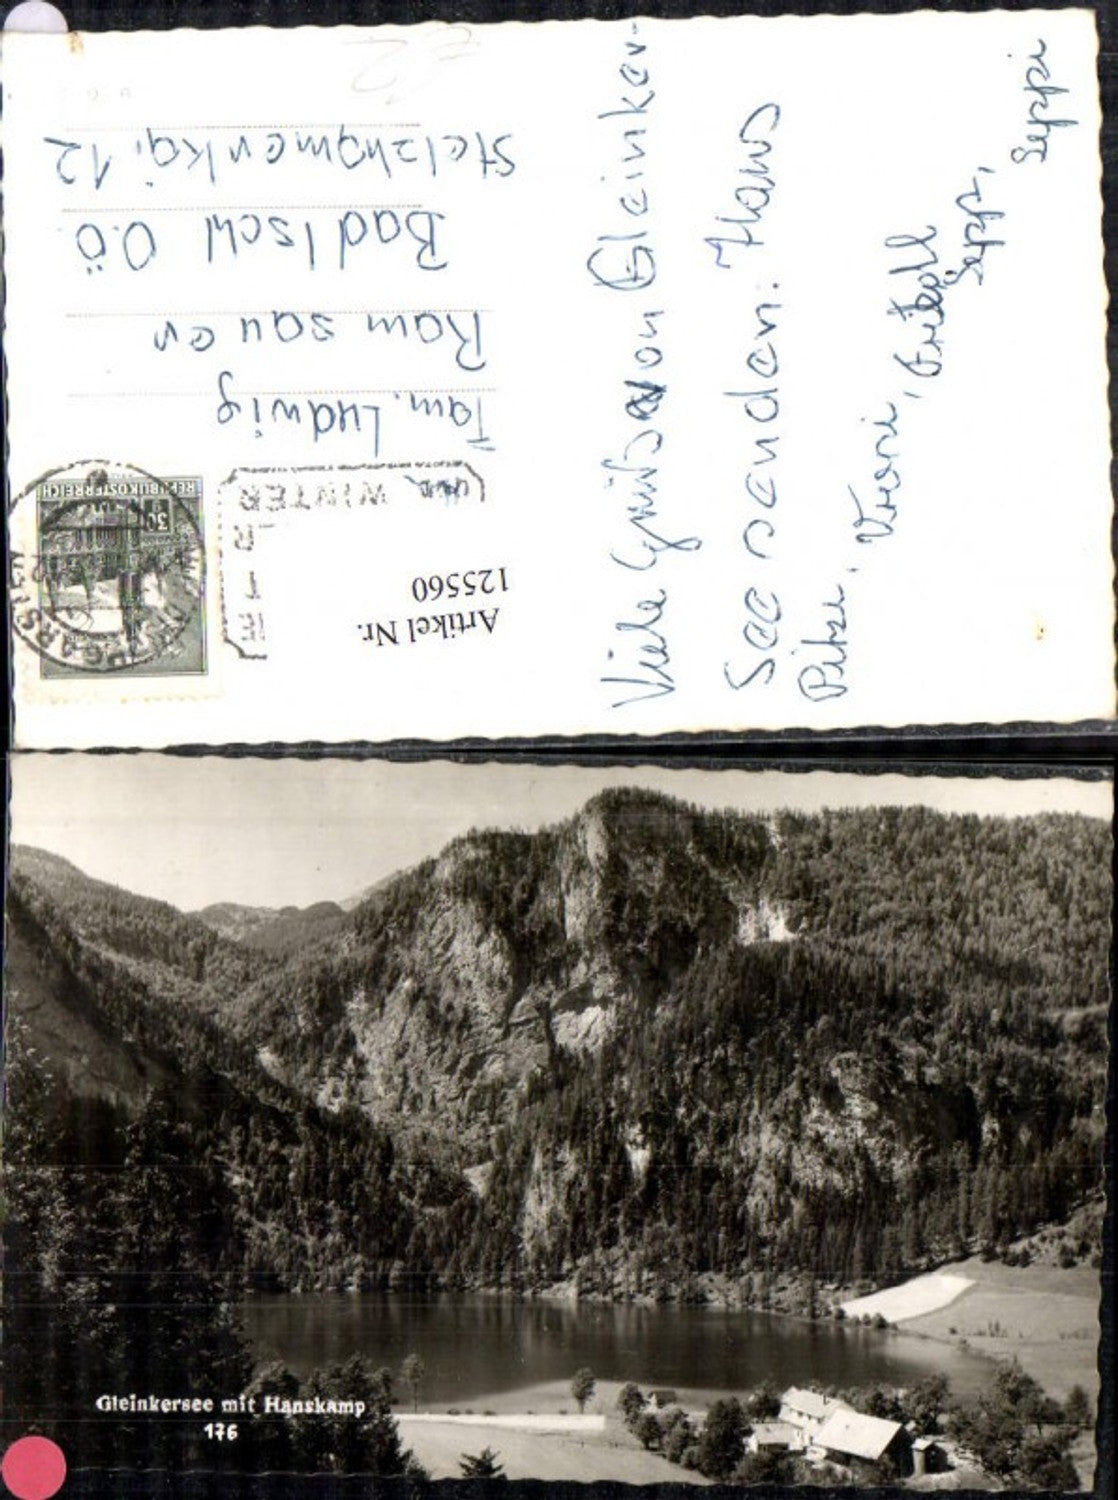 Stelzhamerkai 12
Bad Ischl O.Ö.
Ramsauer
Fam. Ludwig
REPUBLIK ÖSTERREICH
30
WINTER
Artikel Nr.
125560
Viele Grüße von Gleinker-
see senden: Hans
Pitzi, Vroni,
Sepp,
Seppi
Gleinkersee mit Hanskamp
176